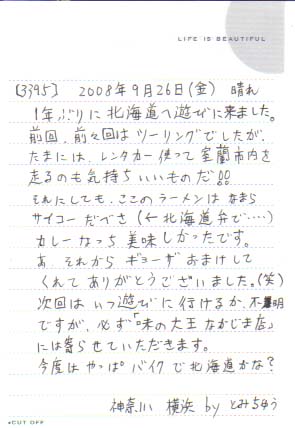 LIFE IS BEAUTIFUL
[3395] 2008年9月26日(金) 晴れ
1年ぶりに北海道へ遊びに来ました。
前回、前々回はツーリングでしたが、
たまには、レンタカー使って室蘭市内を
走るのも気持ちいいものだ!!
それにしても、ここのラーメンはなまら
サイコーだべさ(←北海道弁で‥‥)
カレーなっち美味しかったです。
あ、それからギョーザおまけして
くれてありがとうございました。(笑)
次回はいつ遊びに行けるか、不明
ですが、必ず「味の大王なかじま店」
には寄らせていただきます。
今度はやっぱバイクで北海道かな?
神奈川 横浜 by とみちゅう
CUT OFF